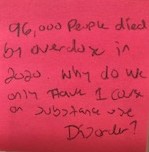 96,000 People died
by overdose in
2020 Why do we
only Have 1 class
on substance use
Disorder?